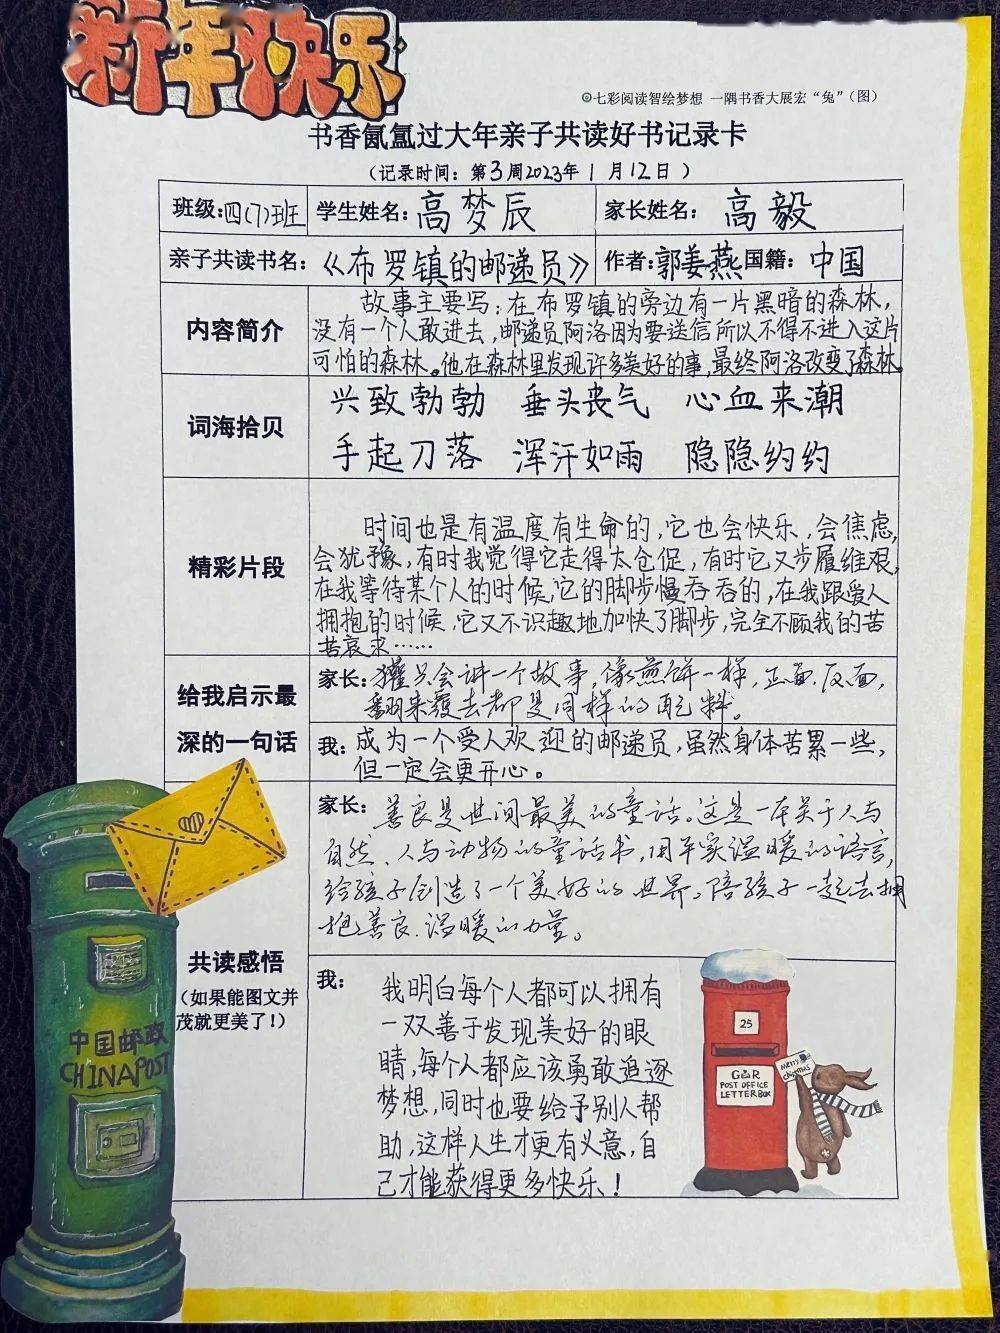 新年快乐
七彩阅读智绘梦想 一隅书香大展宏“兔”（图）
书香氤氲过大年亲子共读好书记录卡
（记录时间：第3周2023年 1 月 12 日 ）
班级：四(7)班 学生姓名：高梦辰 家长姓名：高毅
亲子共读书名：《布罗镇的邮递员》 作者：郭姜燕 国籍：中国
内容简介
故事主要写：在布罗镇的旁边有一片黑暗的森林，
没有一个人敢进去，邮递员阿洛因为要送信所以不得不进入这片
可怕的森林。他在森林里发现许多美好的事，最终阿洛改变了森林。
词海拾贝
兴致勃勃 垂头丧气 心血来潮
手起刀落 浑汗如雨 隐隐约约
精彩片段
时间也是有温度有生命的，它也会快乐，会焦虑，
会犹豫，有时我觉得它走得太仓促，有时它又步履维艰，
在我等待某个人的时候，它的脚步慢吞吞的，在我跟爱人
拥抱的时候，它又不识趣地加快了脚步，完全不顾我的苦
苦哀求……
给我启示最
深的一句话
家长：獾只会讲一个故事，像煎饼一样，正面，反面，
翻来覆去都是同样的配料。
我：成为一个受人欢迎的邮递员，虽然身体苦累一些，
但一定会更开心。
共读感悟
（如果能图文并
茂就更美了！）
家长：善良是世间最美的童话。这是一本关于人与
自然、人与动物的童话书，用平实温暖的语言，
给孩子创造了一个美好的世界。陪孩子一起去拥
抱善良、温暖的力量。
我：
我明白每个人都可以拥有
一双善于发现美好的眼
睛，每个人都应该勇敢追逐
梦想，同时也要给予别人帮
助，这样人生才更有义意，自
己才能获得更多快乐！
中国邮政
CHINAPOST
25
G R
POST OFFICE
LETTER BOX